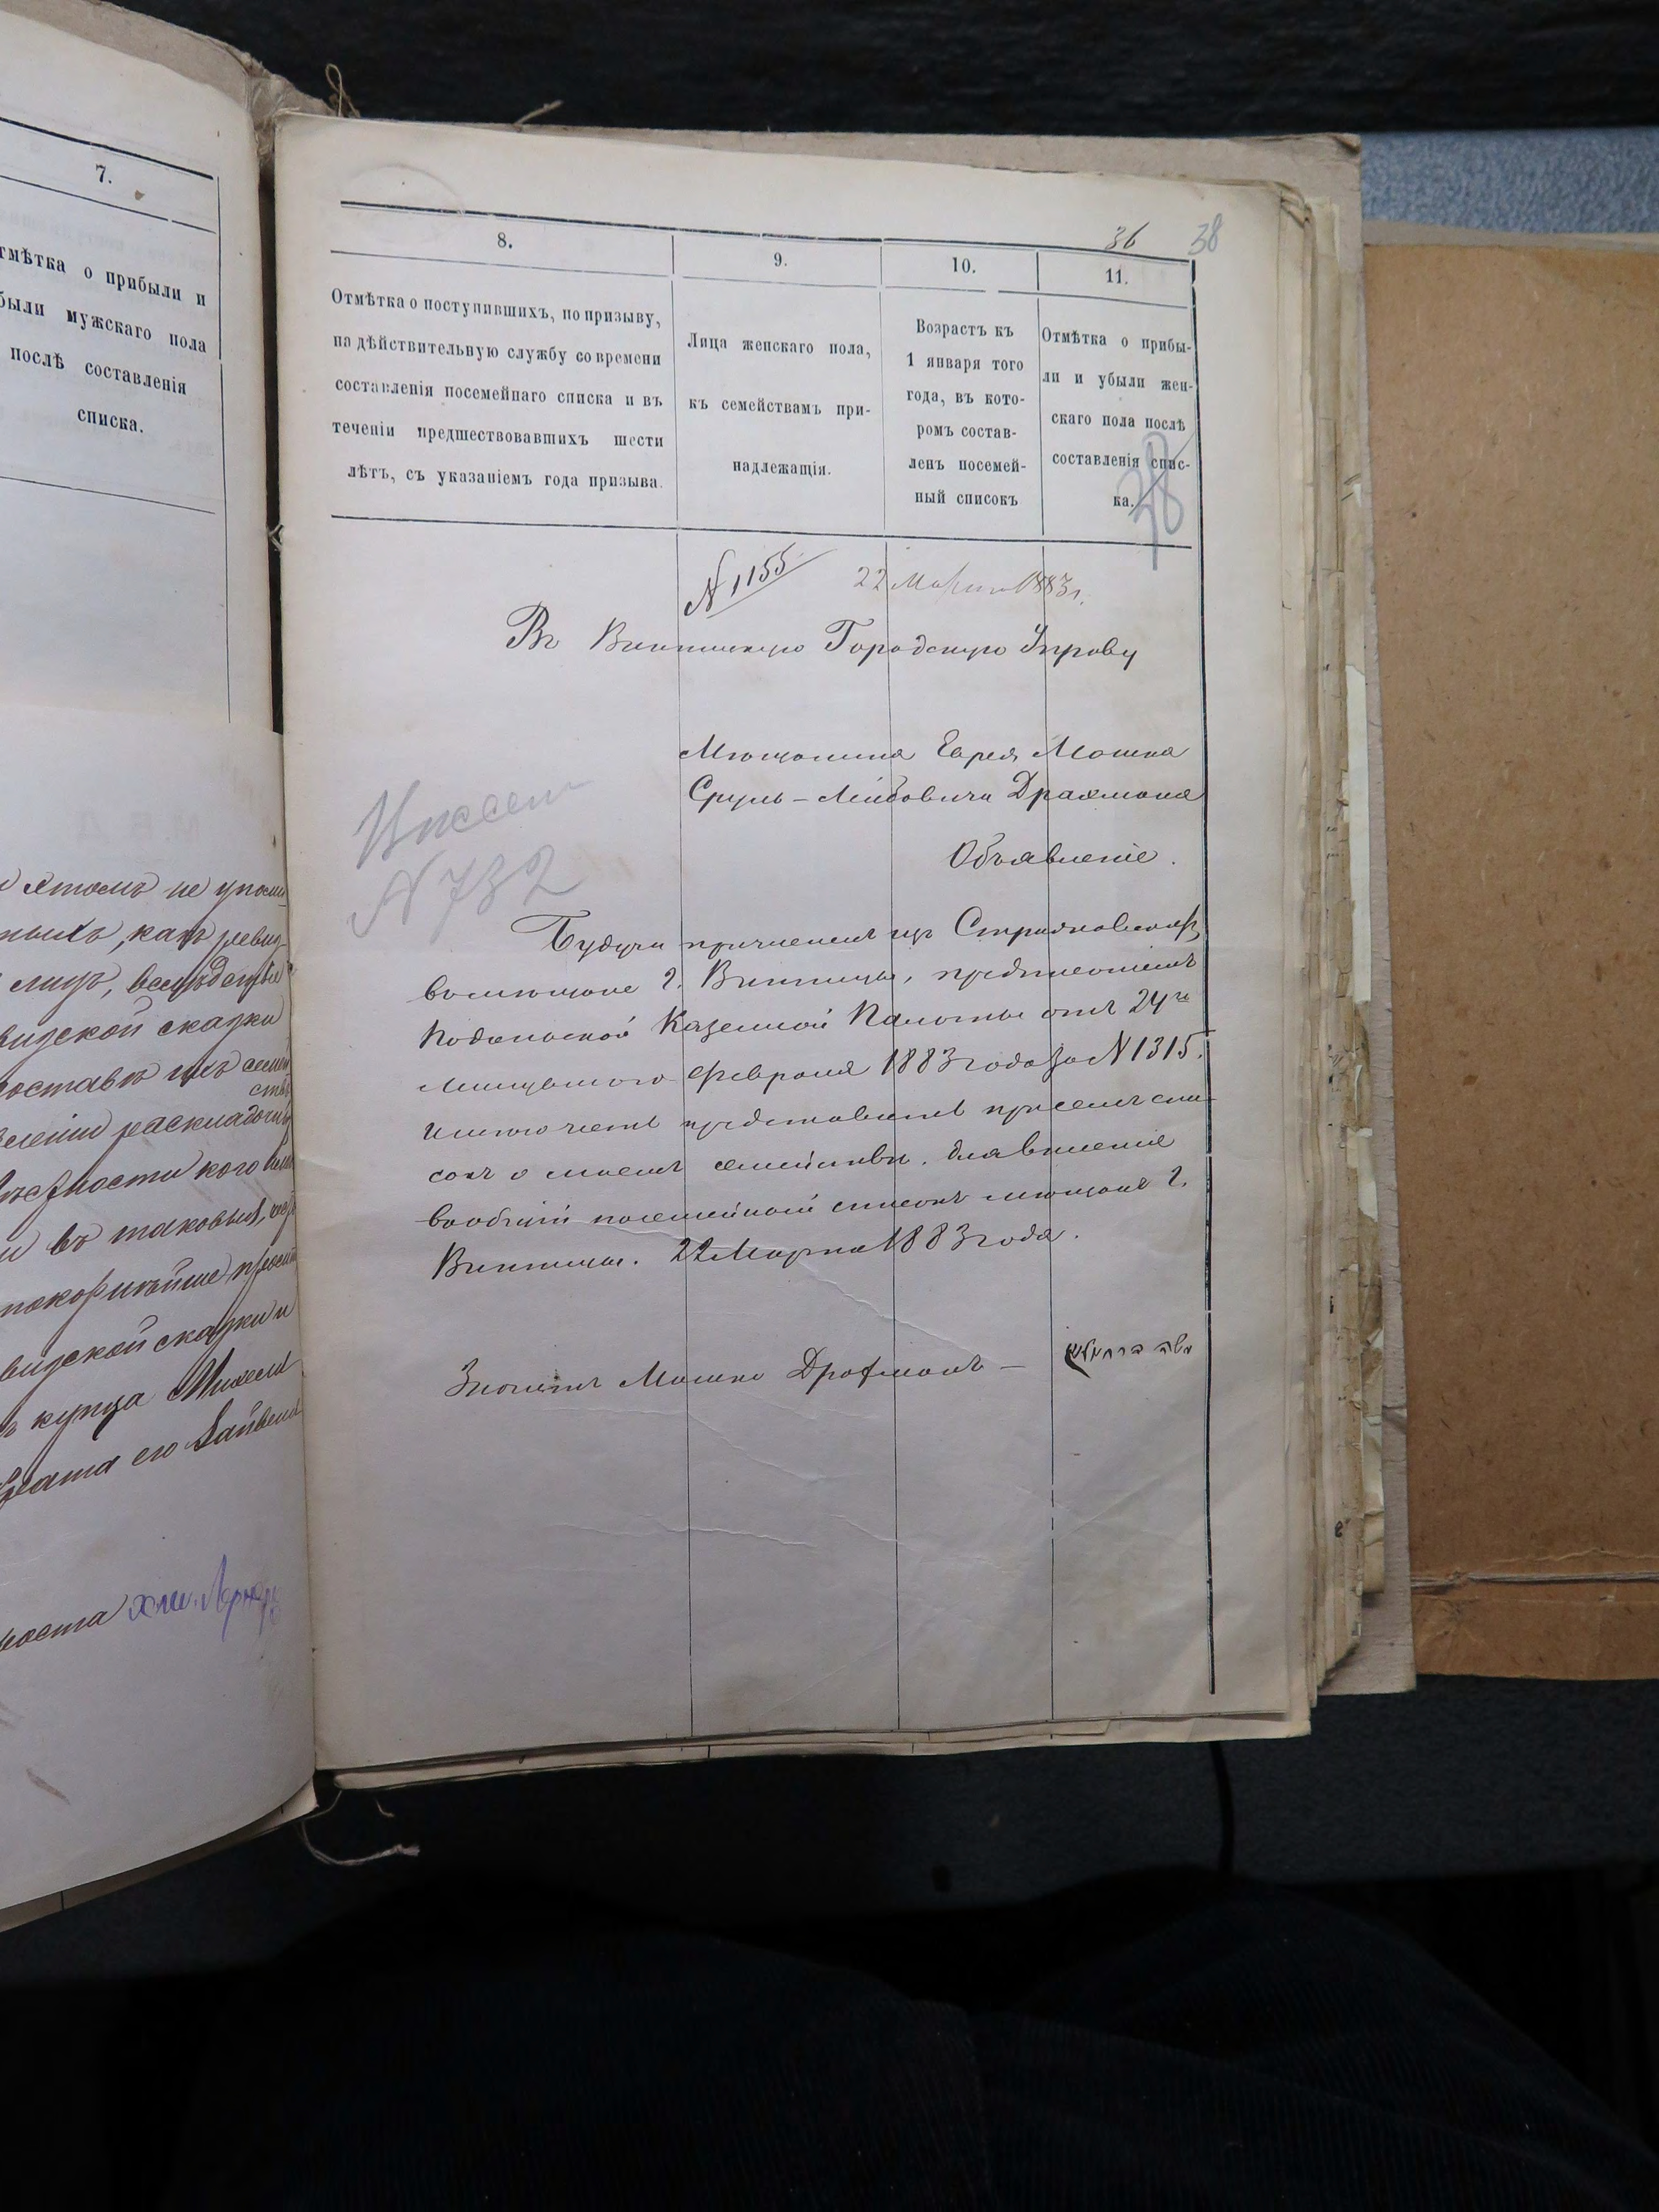 7.
отмѣтка о прибыли и
были мужскаго пола
послѣ составленія
списка.
36 38
8.
Отмѣтка о поступившихъ, по призыву,
на дѣйствительную службу со времени
составленія посемейнаго списка и въ
теченіи предшествовавшихъ шести
лѣтъ, съ указаніемъ года призыва.
9.
Лица женскаго пола,
къ семействамъ при-
надлежащія.
10.
Возрастъ къ
1 января того
года, въ кото-
ромъ состав-
ленъ посемей-
ный списокъ
11.
Отмѣтка о прибы-
ли и убыли жен-
скаго пола послѣ
составленія спис-
ка.
38
N 1155
22 Марта 1883 г.
Въ Винницкую Городскую Управу
Мѣщанина Еврея Мошка
Сруль-Лейбовича Драхмана
Объявленіе.
N 732
Будучи причисленъ изъ
въ мѣщане г. Винницы, предписаніемъ
Подольской Казенной Палаты отъ 24го
минувшаго Февраля 1883 года за N 1315.
имѣю честь представить при семъ спи-
сокъ о моемъ семействѣ, для внесенія
въ общій посемейный списокъ мѣщанъ г.
Винницы. 22 Марта 1883 года.
Мошко Драхманъ —
משה דראכמאן
не упомя-
какъ ревиз-
лицъ, вслѣдствіе
ревизской сказки
составѣ ихъ семей
ствъ
раскладочн
кого либо
и въ таковыя,
покорнѣйше просит
ревизской сказки и
купца
брата его